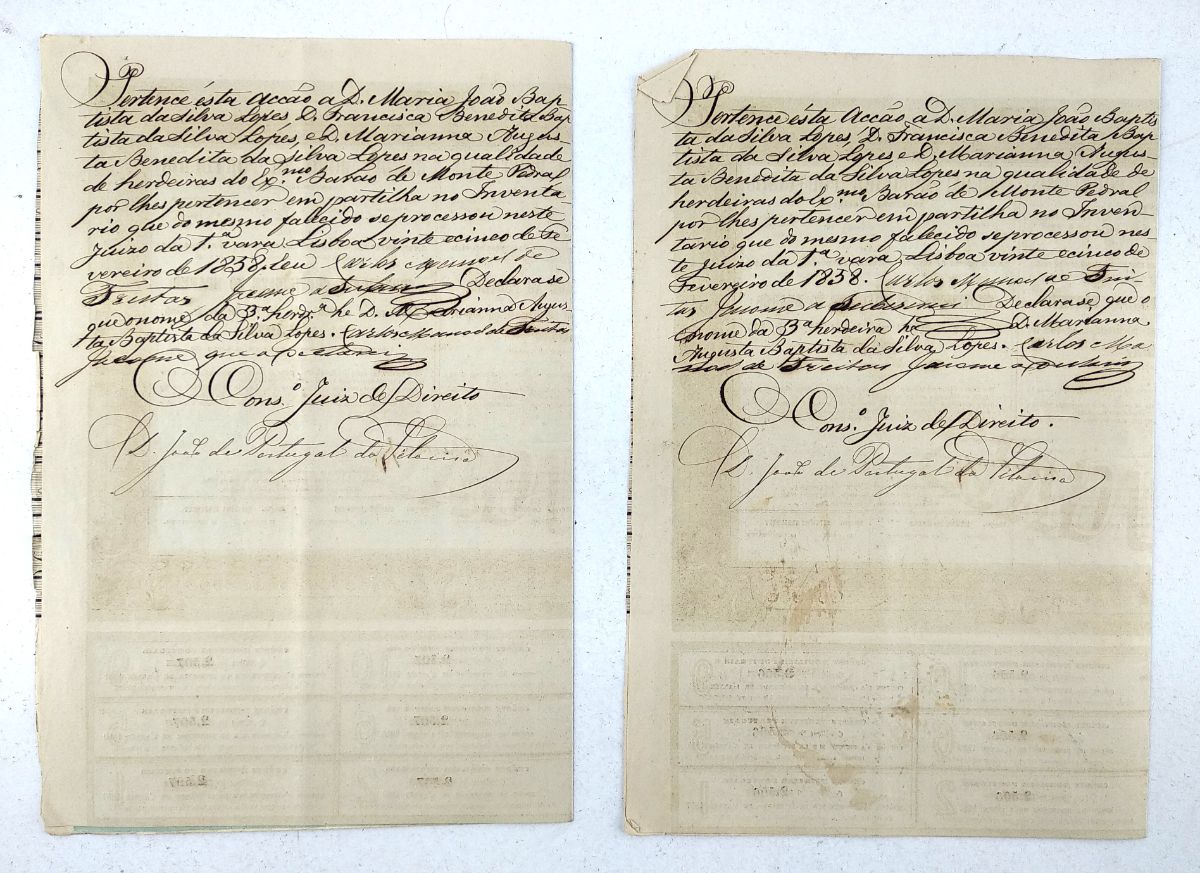 Pertence ésta Acção a D. Maria João Bap-
tista da Silva Lopes, D. Francisca Benedita Bap
tista da Silva Lopes, e D. Marianna Augus-
ta Benedita da Silva Lopes na qualidade
de herdeiras do Ex.mo Barão de Monte Pedral
por lhes pertencer em partilha no Inventa
rio que do mesmo falecido se processou neste
Juizo da 1.ª vara Lisboa vinte e cinco de Fe
vereiro de 1858, eu Carlos Manoel de
Freitas Jacome a Declarase
que o nome da 3.ª herdr.ª he D. Marianna Augus
ta Baptista da Silva Lopes. Carlos Manoel de Freitas
Jacome que a
Cons.º Juiz de Direito
D. João de Portugal da Silveira
2.507
2.507
2.507
2.507
2.507
2.507
Pertence ésta Acção a D. Maria João Baptis
ta da Silva Lopes, D. Francisca Benedita Bap
tista da Silva Lopes e D. Marianna Augus-
ta Benedita da Silva Lopes na qualidade de
herdeiras do Ex.mo Barão de Monte Pedral
por lhes pertencer em partilha no Inven-
tario que do mesmo falecido se processou nes-
te Juizo da 1.ª vara Lisboa vinte e cinco de
Fevereiro de 1858. Carlos Manoel de Frei-
tas Jacome a Declarase que o
nome da 3.ª herdeira he D. Marianna
Augusta Baptista da Silva Lopes. Carlos Ma
noel de Freitas Jacome a
Cons.º Juiz de Direito.
D. João de Portugal da Silveira
2.506
2.506
2.506
2.506
2.506
2.506